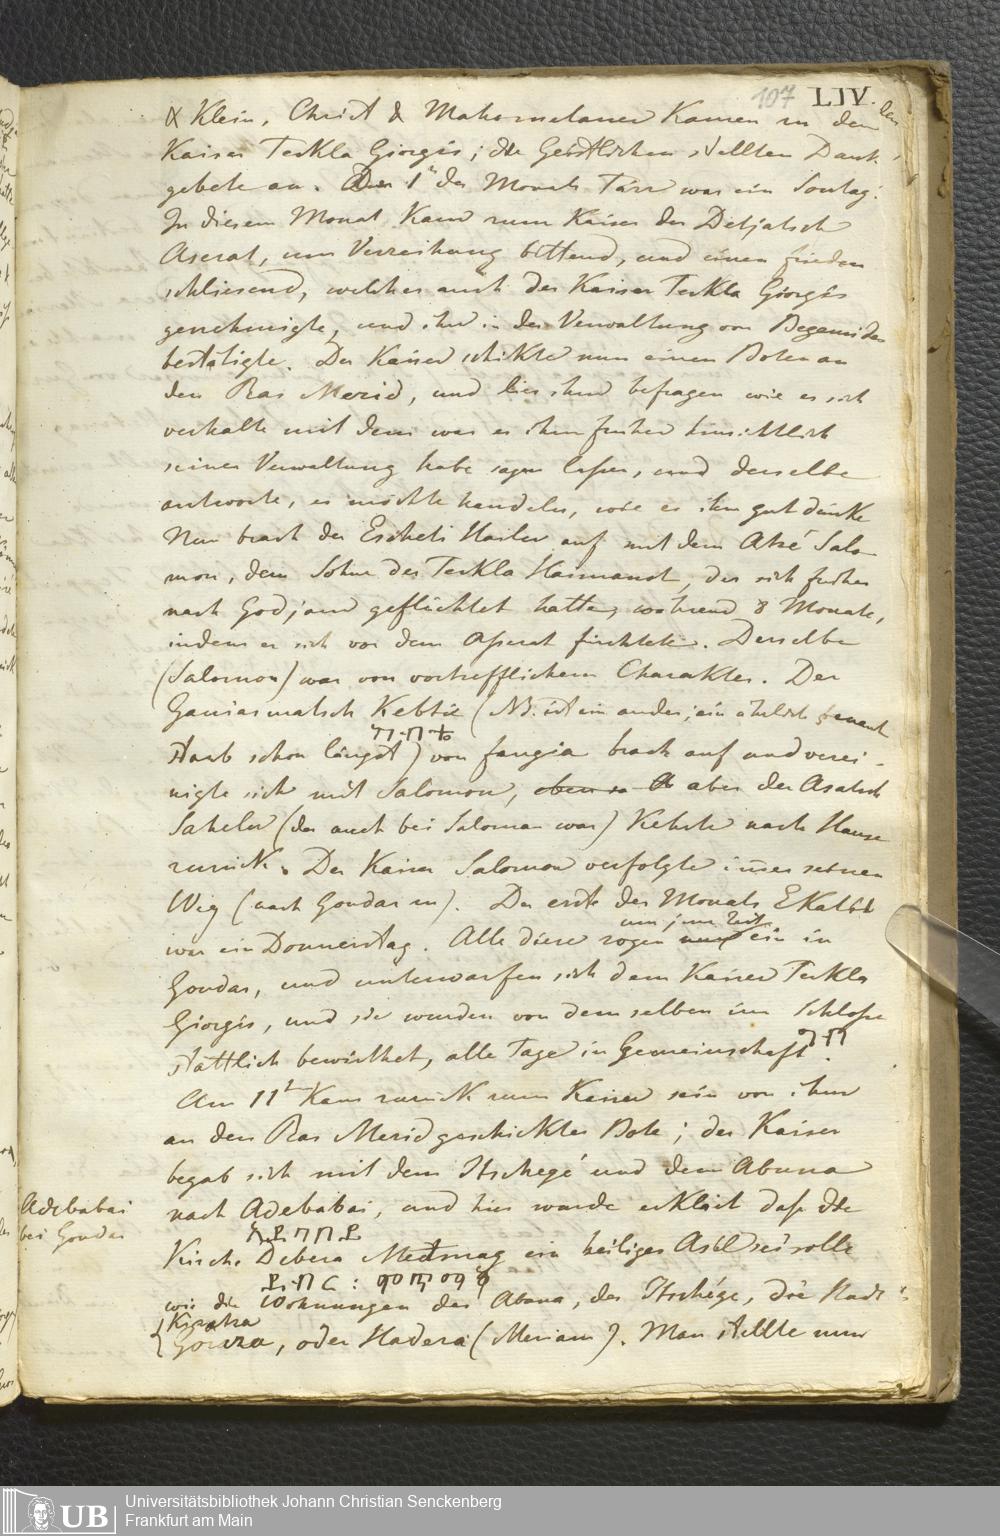 107 LIV.
& Klein, Christ & Mahometaner Kamen zu dem den
Kaiser Teckla Giorgis; die Geistlichen stellten Dank-
gebete an. Den 1t des Monats Tarr war ein Sontag.
In diesem Monat Kam zum Kaiser der Detjatsch
Aserat, um Verzeihung bittend, und einen frieden
schliesend, welches auch der Kaiser Teckla Giorgis
genehmigte, und ihn in der Verwaltung von Begemider
bestätigte. Der Kaiser schikte nun einen Boten an
den Ras Merid, und lies ihn befragen wie es sich
verhalte mit dem was er ihm früher hinsichtlich
seiner Verwaltung habe sagen lassen, und derselbe
antworte, er möchte handeln, wie es ihm gut dünke
Nun brach der Escheti Hailu auf mit dem Atzé Salo-
mon, dem Sohne des Teckla Haimanot, der sich früher
nach Godjam geflüchtet hatte, während 8 Monate,
indem er sich vor dem Aserat fürchtete. Derselbe
(Salomon) war von vortrefflichem Charakter. Der
Ganiasmatsch Kebtie (NB. ist ein ander, ein ähnlich genannt
starb schon längst) von fangia brach auf und verei-
nigte sich mit Salomon, eben so aber der Asalach
Sahelu (der auch bei Salomon war) Kehrte nach Hause
zurück. Der Kaiser Salomon verfolgte immer seinen
Weg (nach Gondar zu). Der erste des Monats EKatit
um jene Zeit
war ein Donnerstag. Alle diese zogen nun ein in
Gondar, und unterwarfen sich dem Kaiser Teckla
Giorgis, und sie wurden von demselben im Schlosse
stattlich bewirthet, alle Tage in Gemeinschaft.
Am 11t Kam zurück zum Kaiser sein von ihm
an den Ras Merid geschickter Bote; der Kaiser
begab sich mit dem Itschegé und dem Abuna
Adebabai
bei Gondar
nach Adebabai, und hier wurde erklärt dass die
አደባባይ
Kirche Debera Metsmag ein heiliges Asil sei solle
ደብር
wie die Wohnungen des Abuna, des Itschége, die Stadt
Goirza, oder Hadera (Meriam). Man stellte nun
Universitätsbibliothek Johann Christian Senckenberg
Frankfurt am Main
UB